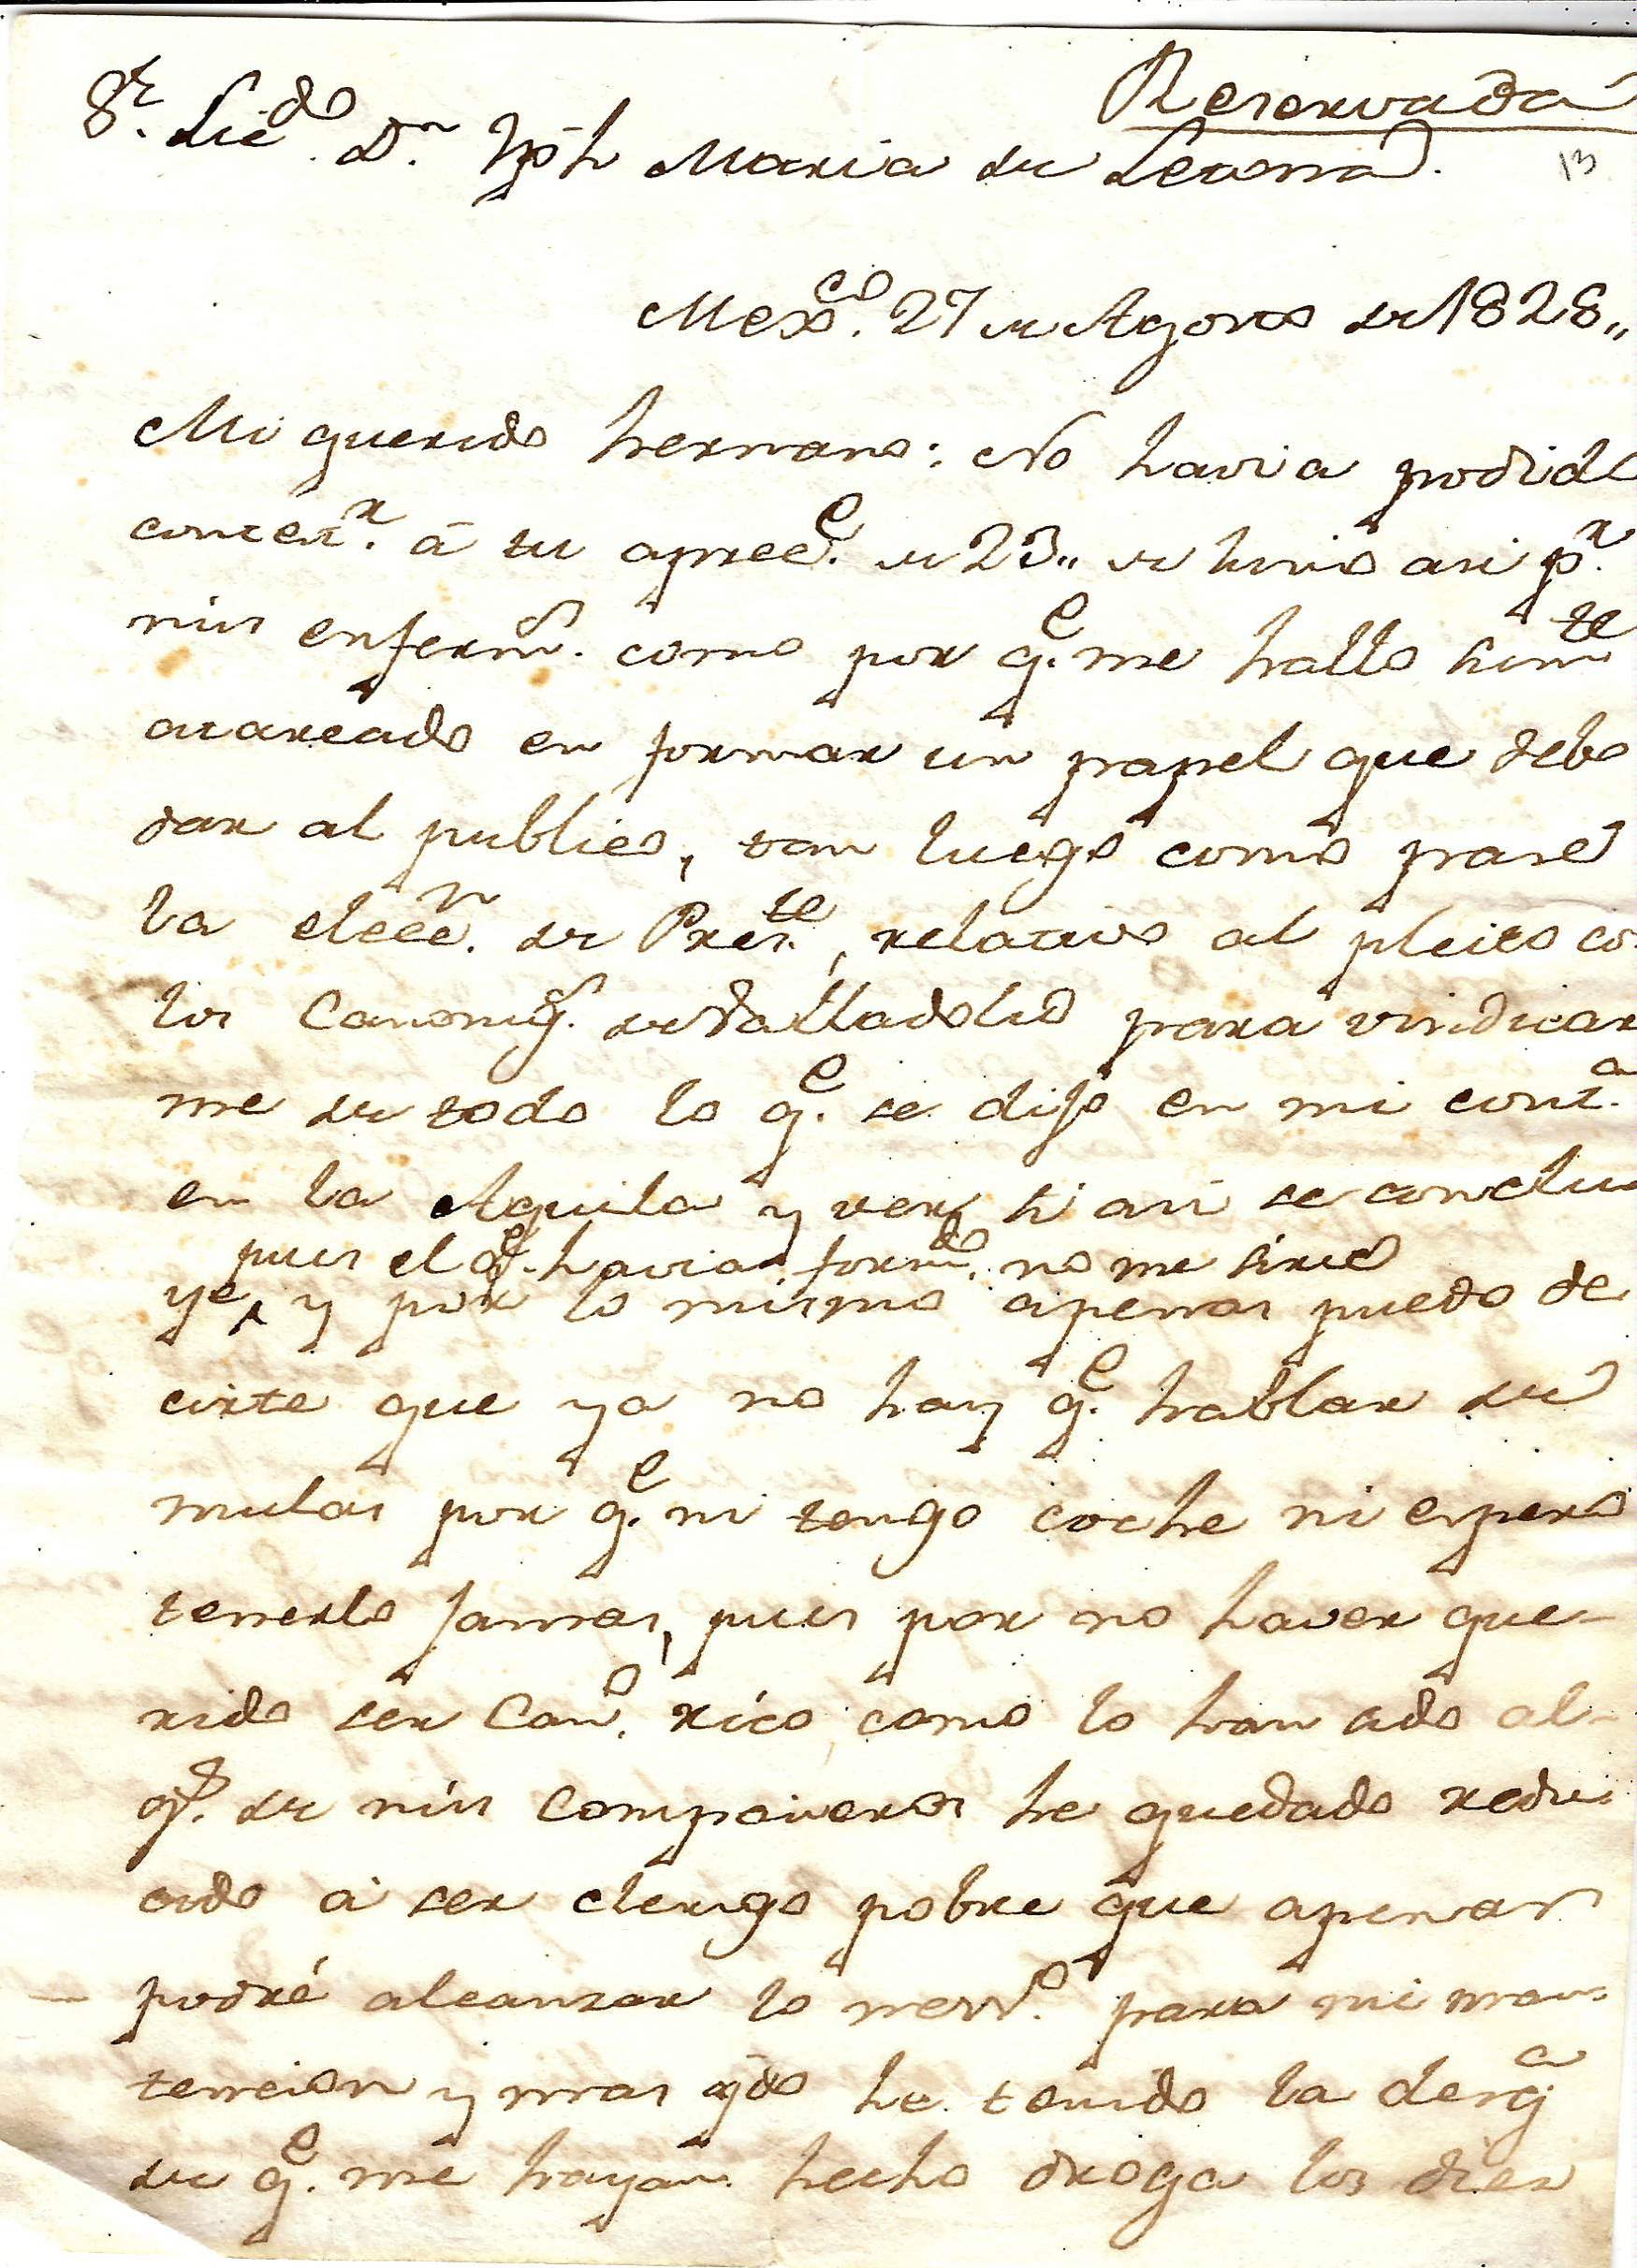 Reservada
Sr. Licdo. Dn. Jph Maria de Letona.
13
Mexco. 27 de Agosto de 1828,,
Mi querido hermano: No havia podido
contextr. á tu aprece. de 23,, de Junio asi pr.
mis enferms. como por qe. me hallo sumte
atareado en formar un papel que debo
dar al publico, tan luego como pase
la eleccn. de Preste., relativo al pleito co
los Canonigs. de Valladolid para vindicar
me de todo lo qe. se dijo en mi conta.
en la Aguila y ver si asi se conclu
pues el qe. havia formdo. no me sirve
ye, y por lo mismo apenas puedo de
cirte que ya no hay qe. hablar de
mulas por qe. ni tengo coche ni espero
tenerlo jamas, pues por no haver que-
rido ser Cano. rico como lo han sido al-
gs. de mis compañeros he quedado redu-
cido á ser clerigo pobre que apenas
podré alcanzar lo neso. para mi man-
tencion y mas qdo he tenido la desga
de qe. me hayan hecho droga los diez